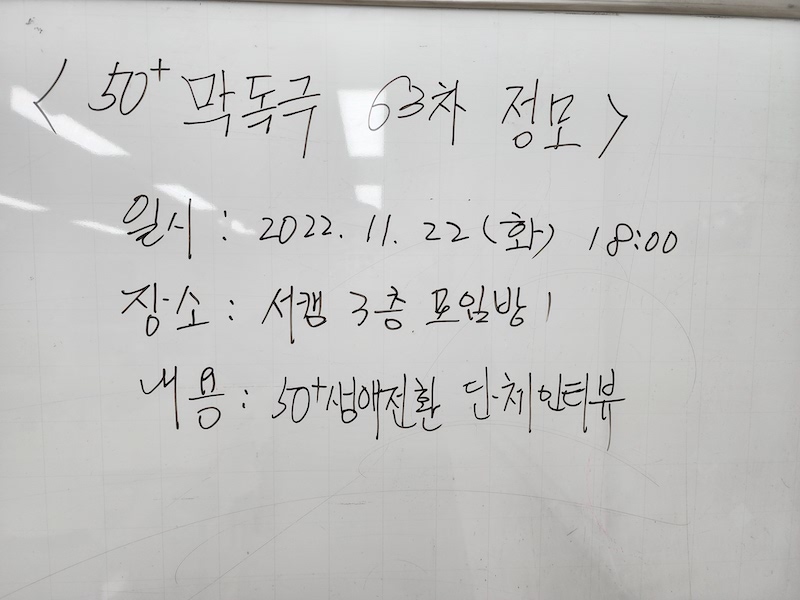 < 50+ 막독극 63차 정모 >
일시 : 2022. 11. 22 (화) 18:00
장소 : 서캠 3층 모임방 1
내용 : 50+생애전환 단체인터뷰